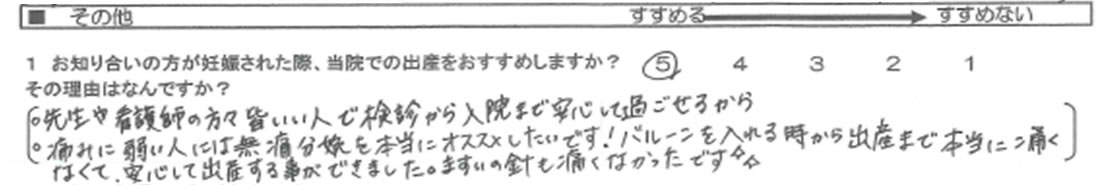 ■ その他 すすめる すすめない
1 お知り合いの方が妊娠された際、当院での出産をおすすめしますか? 5 4 3 2 1
その理由はなんですか?
○先生や看護師の方々皆いい人で検診から入院まで安心して過ごせるから
○痛みに弱い人には無痛分娩を本当にオススメしたいです!バルーンを入れる時から出産まで本当に痛く
なくて、安心して出産する事ができました。ますいの針も痛くなかったです☆☆